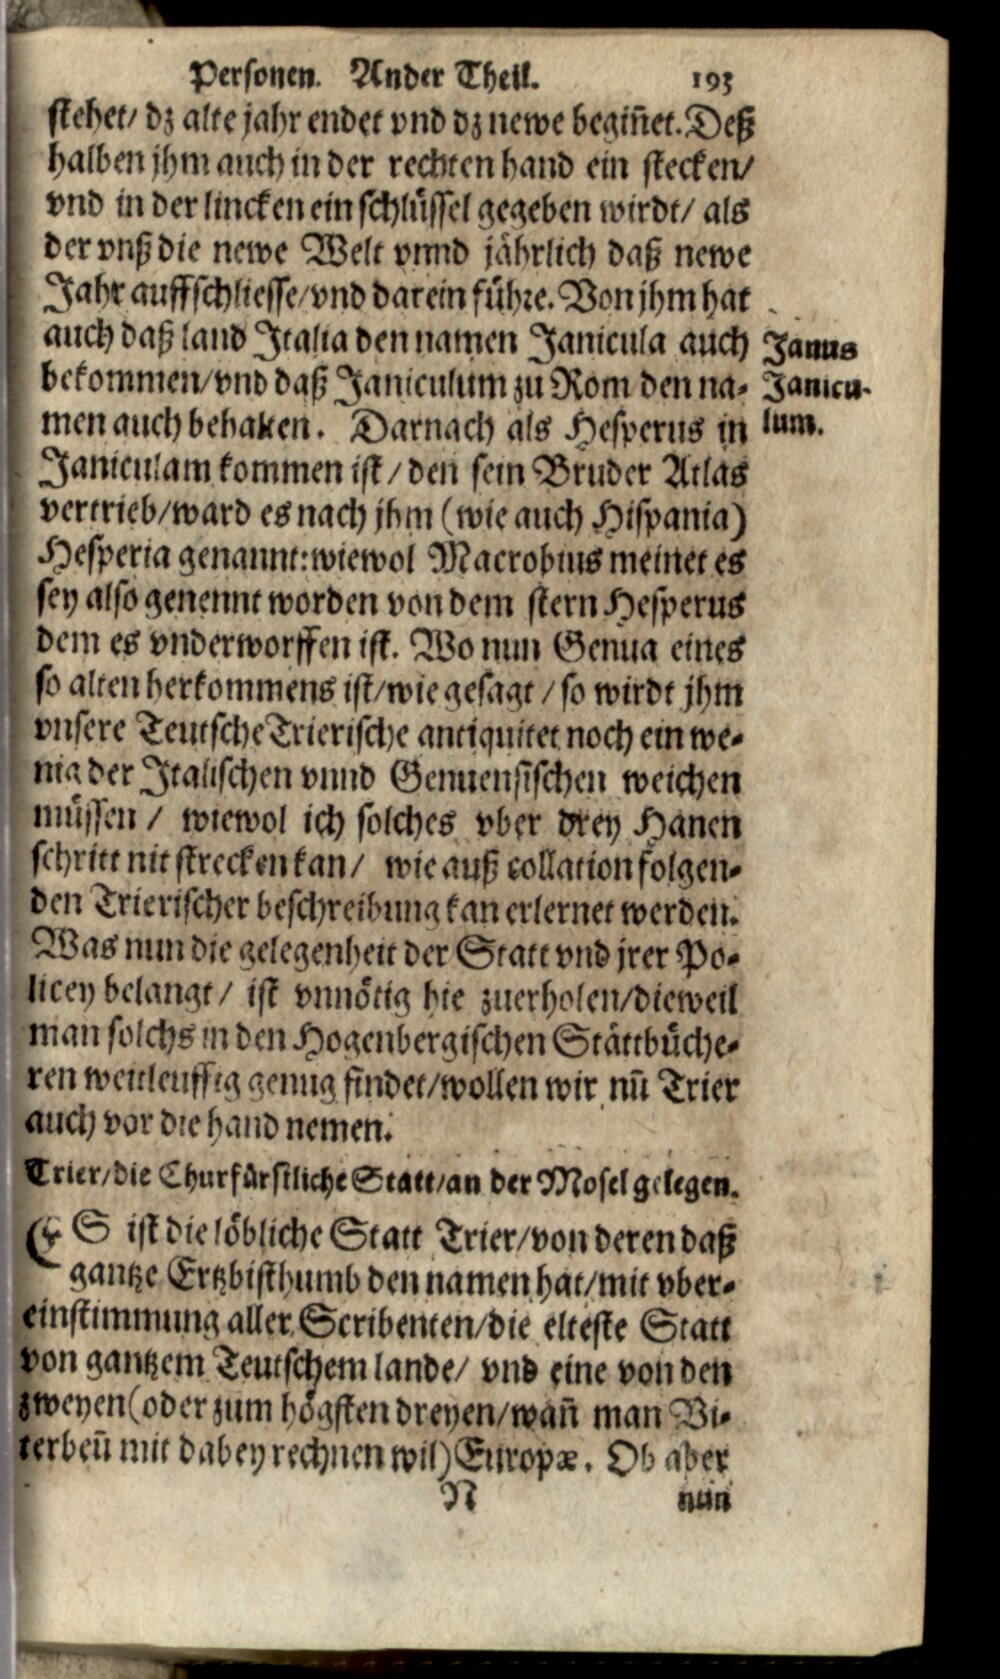 Personen. Ander Theil. 193
stehet/ dz alte jahr endet vnd dz newe begiñet. Deß
halben jhm auch in der rechten hand ein stecken/
vnd in der lincken ein schlüssel gegeben wirdt/ als
der vnß die newe Welt vnnd jährlich daß newe
Jahr auffschliesse/vnd darein führe. Von jhm hat
auch daß land Italia den namen Janicula auch
bekommen/vnd daß Janiculum zu Rom den na-
men auch behalten. Darnach als Hesperus in
Janiculam kommen ist/ den sein Bruder Atlas
vertrieb/ward es nach jhm (wie auch Hispania)
Hesperia genannt: wiewol Macrobius meinet es
sey also genennt worden von dem stern Hesperus
dem es vnderworffen ist. Wo nun Genua eines
so alten herkommens ist/wie gesagt/ so wirdt jhm
vnsere Teutsche Trierische antiquitet noch ein we-
nig der Italischen vnnd Genuensischen weichen
müssen/ wiewol ich solches vber drey Hanen
schritt nit strecken kan/ wie auß collation folgen-
den Trierischer beschreibung kan erlernet werden.
Was nun die gelegenheit der Statt vnd jrer Po-
licey belangt/ ist vnnötig hie zuerholen/dieweil
man solchs in den Hogenbergischen Stättbüche-
ren weitleuffig genug findet/wollen wir nũ Trier
auch vor die hand nemen.
Trier/die Churfürstliche Statt/an der Mosel gelegen.
ES ist die löbliche Statt Trier/von deren daß
gantze Ertzbisthumb den namen hat/mit vber-
einstimmung aller Scribenten/die elteste Statt
von gantzem Teutschem lande/ vnd eine von den
zweyen (oder zum högsten dreyen/wañ man Vi-
terbeũ mit dabey rechnen wil) Europæ. Ob aber
N nun
Janus
Janicu-
lum.